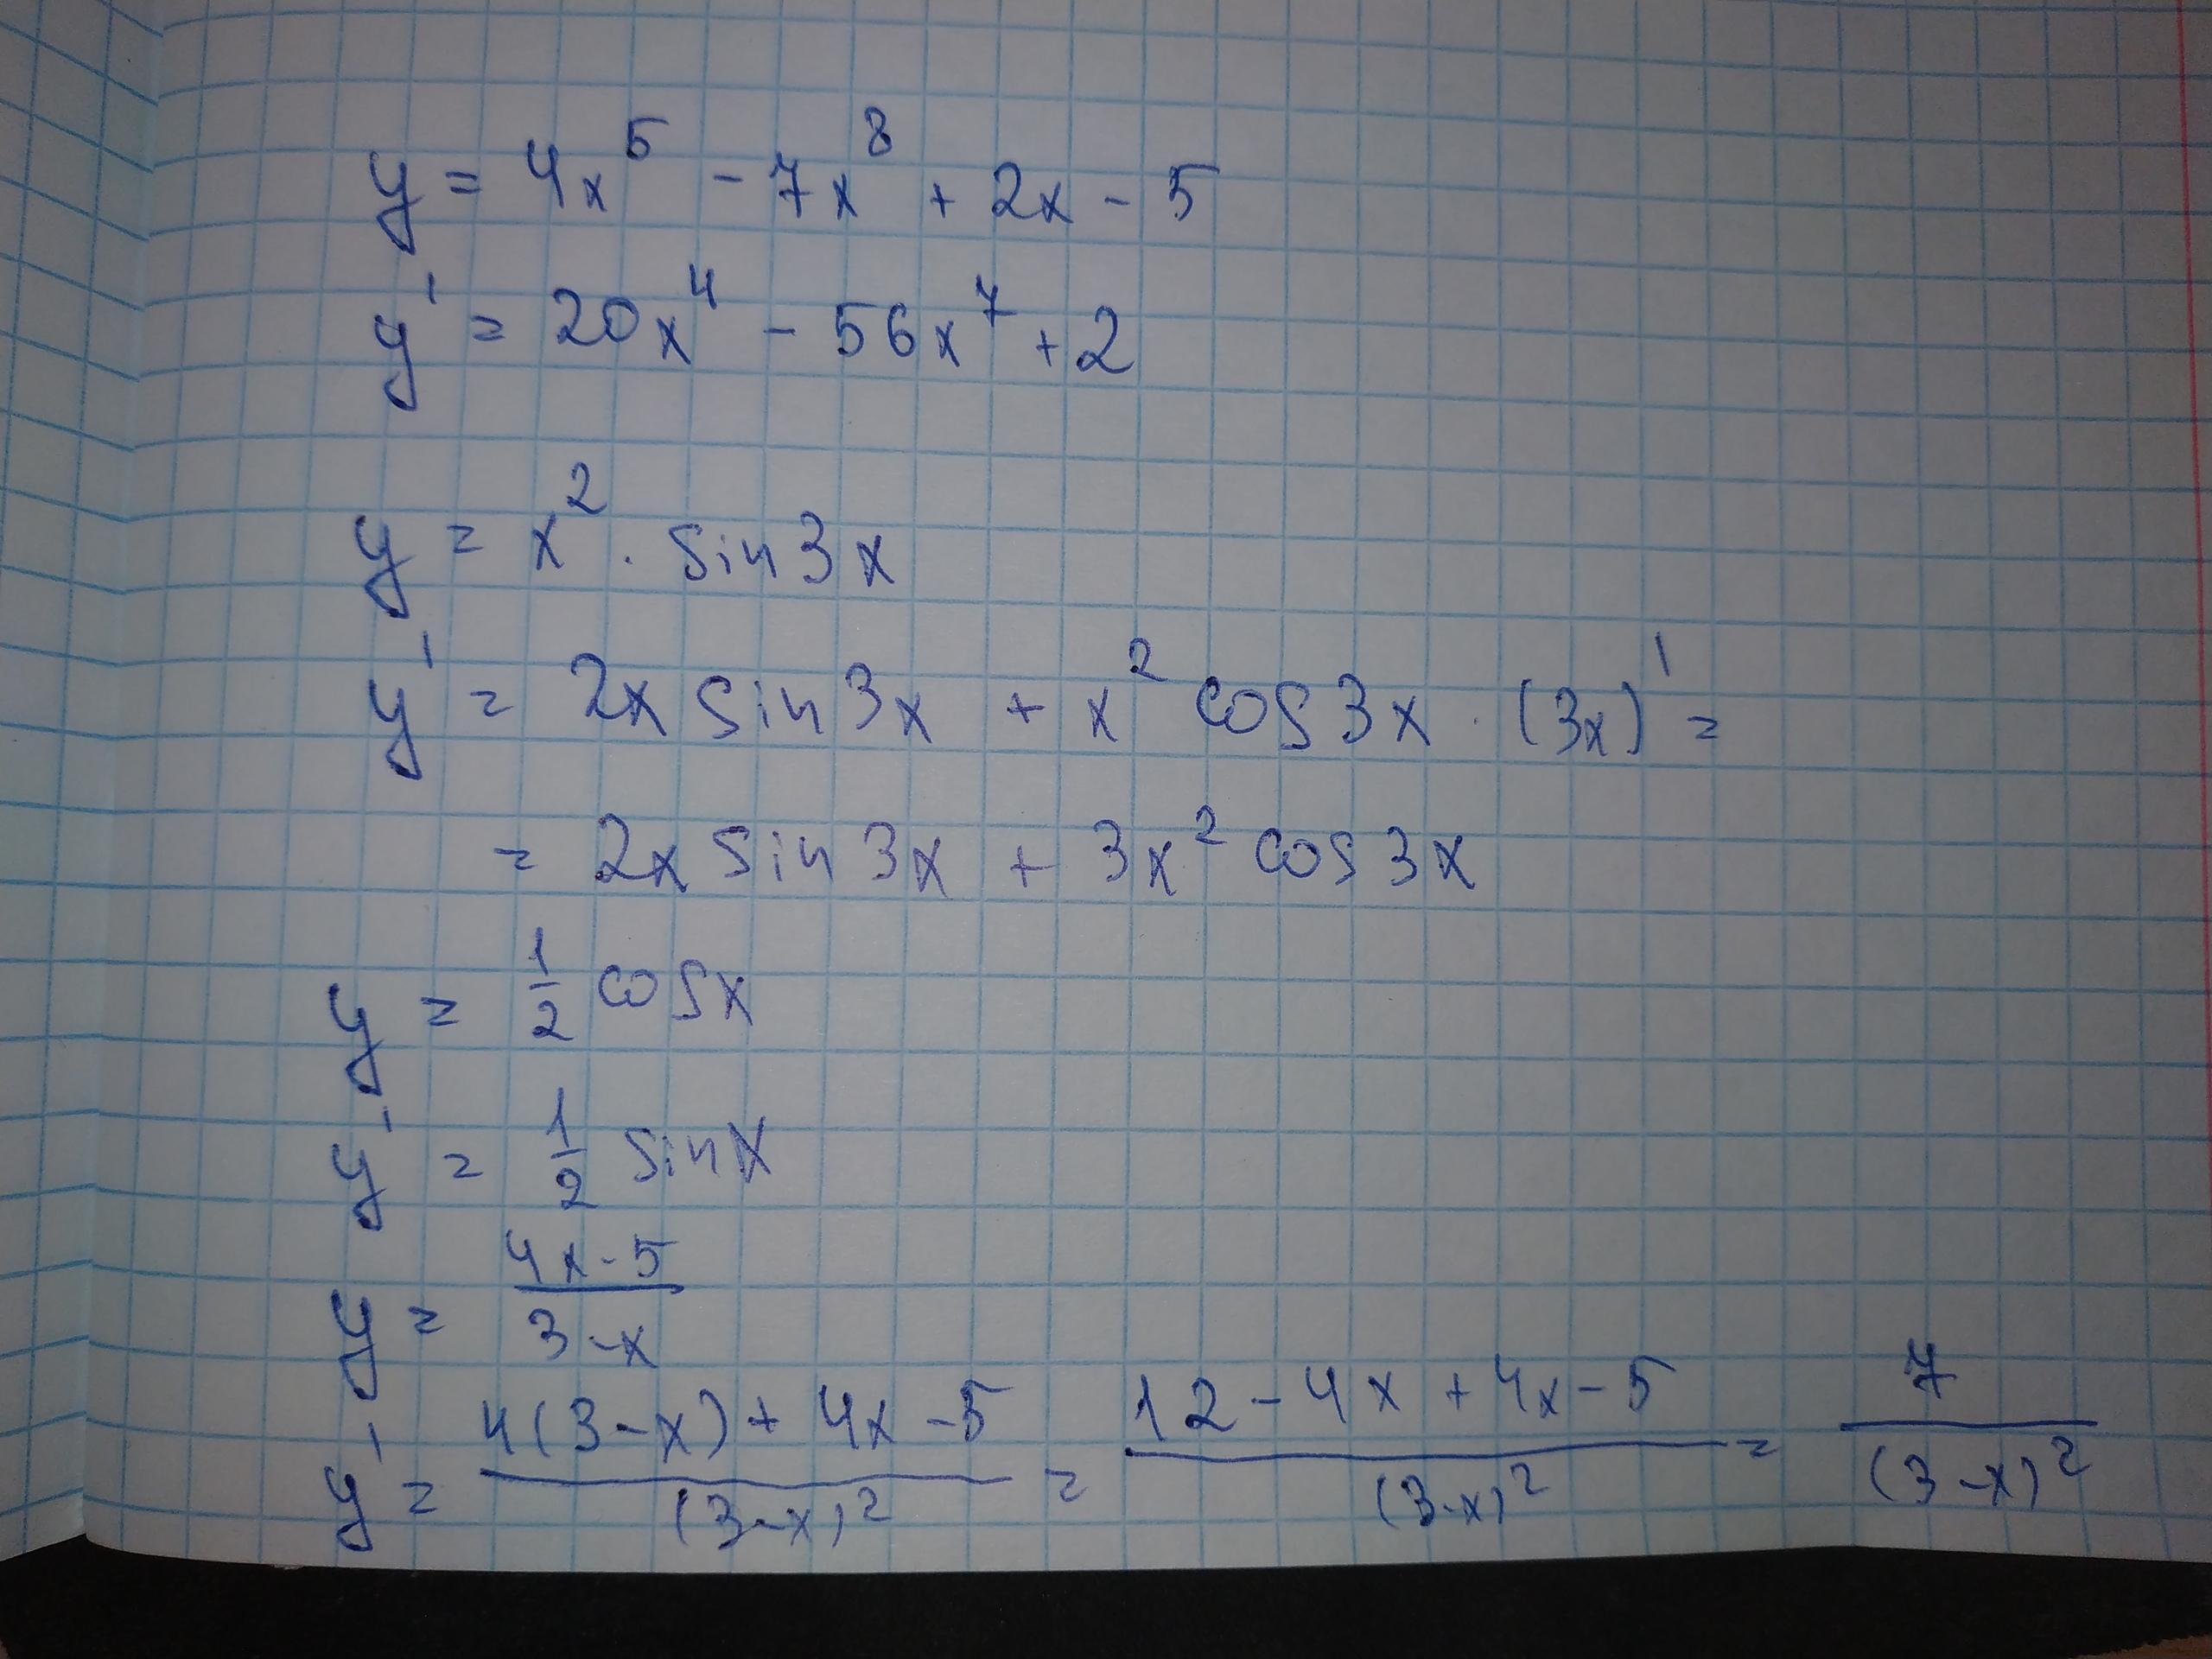 y = 4x⁵ - 7x⁸ + 2x - 5
y' = 20x⁴ - 56x⁷ + 2
y = x² · sin3x
y' = 2x sin3x + x² cos3x · (3x)' =
= 2x sin3x + 3x² cos3x
y = 1/2 cosx
y' = 1/2 sinx
y = (4x-5)/(3-x)
y' = (4(3-x) + 4x - 5)/(3-x)² = (12 - 4x + 4x - 5)/(3-x)² = 7/(3-x)²